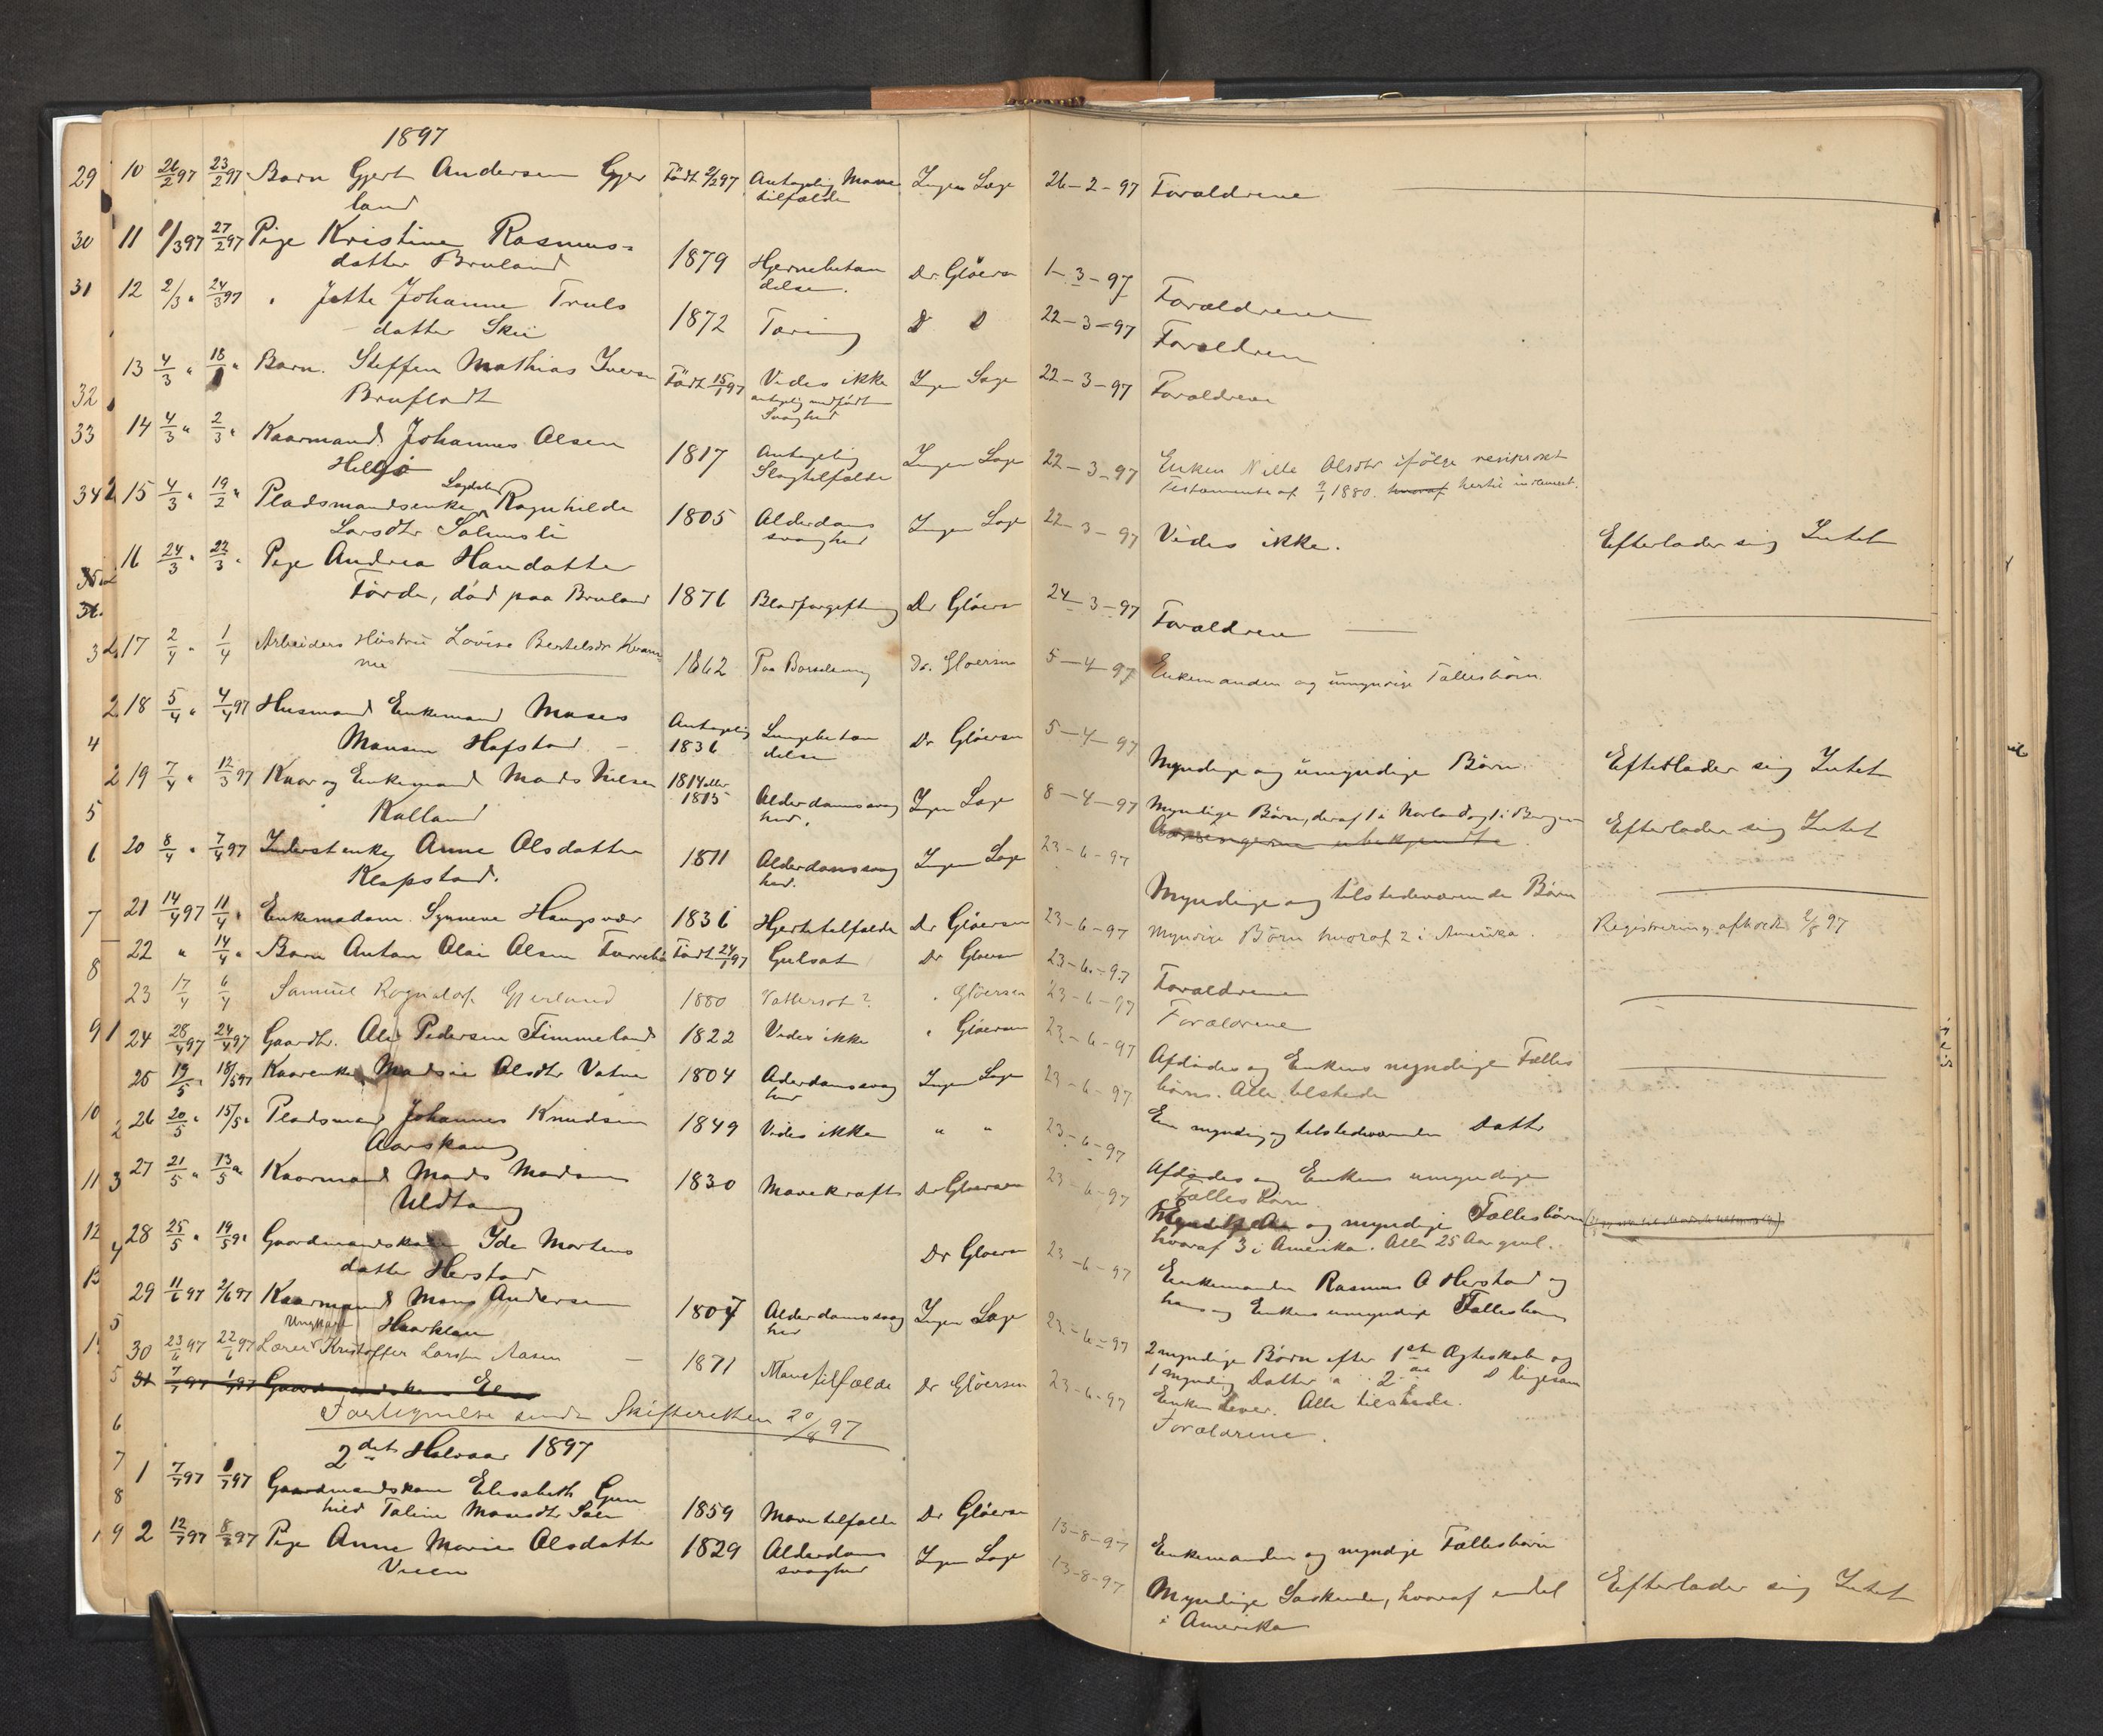 1897
29 10 26/2 97 23/2 97 Barn Gjert Andersen Gjer Født 9/2 97 Antagelig Mave Ingen Læge 26-2-97 Forældrene
land tilfælde
30 11 1/3 97 27/2 97 Pige Kristine Rasmus= 1879 Hjernebetæn Dr Gløersen 1-3-97 Forældrene
datter Bruland delse.
31 12 2/3 " 24/3 97 " Jette Johanne Truls 1872 Tæring D D 22-3-97 Forældrene
datter Skei
32 13 4/3 " 18 " Barn. Steffen Mathias Iversen Født 15/1 97 Vides ikke Ingen Læge 22-3-97 Forældrene
Brufladt antagelig medfødt
Svaghed
33 14 4/3 " 2/3 " Kaarmand Johannes Olsen 1817 Antagelig Ingen Læge 22-3-97 Enken Nille Olsdtr ifølge resiprokt
Helgø Slagtilfælde Testamente af 9/1 1880. hvoraf hertil indleveret.
34 2 15 4/3 " 19/2 " Pladsmandsenke Ragnhilde 1805 Alderdoms Ingen Læge 22-3-97 Vides ikke. Efterlader sig Intet
Larsdtr Solemsli svaghed
35 16 24/3 " 22/3 " Pige Andrea Hansdatter
Førde, død paa Bruland 1876 Blodforgiftning Dr Gløersen 24-3-97 Forældrene
17 2/4 " 1/4 Arbeiders Hustru Lovise Bertelsdtr Kvam 1862 Paa Barselseng Dr. Gløersen 5-4-97 Enkemanden og umyndige Fællesbørn.
me
2 18 5/4 " 4/4 97 Husmand Enkemand Moses Antagelig Lungebetæn Dr Gløersen 5-4-97 Myndige og umyndige Børn. Efterlader sig Intet
4 Monsen Hafstad 1836 delse
2 19 7/4 " 12/3 97 Kaar og Enkemand Mads Nilsen 1814 eller Alderdomssvag Ingen Læge 8-4-97 Myndige Børn, deraf 1 i Norland og 1 i Bergen Efterlader sig Intet
5 Kalland 1815 hed. Arvingerne ubekjendte
6 20 8/4 " 7/4 97 Inderstenke Anne Olsdatter 1811 Alderdomssvag Ingen Læge 23-6-97 Myndige og tilstedeværende Børn
Klapstad. hed.
7 21 14/4 97 11/4 " Enkemadam Synneve Haugsvær 1836 Hjertetilfælde Dr Gløersen 23-6-97 Myndige Børn hvoraf 2 i Amerika. Registrering afholdt 2/8 97
8 22 " 14/4 " Barn Anton Olai Olsen Født 24/1 97 Gulsot Dr Gløersen 23-6-97 Forældrene
23 17/4 6/4 Samuel Rognaldsen Gjerland 1880 ? " Gløersen 23-6-97 Forældrene
9 1 24 28/4 97 24/4 97 Gaardbr. Ole Pedersen Fimmeland 1822 Vides ikke " Gløersen 23-6-97 Afdødes og Enkens myndige Fælles
børn. Alle tilstede
25 19/5 " 18/5 97 Kaarenke Madsie Olsdtr Vatne 1804 Alderdomssvag Ingen Læge 23-6-97 En myndig og tilstedeværende Datter
hed
10 2 26 20/5 " 15/5 " Pladsmand Johannes Knudsen 1849 Vides ikke " " 23-6-97 Afdødes og Enkens umyndige
Aarskaug Fælles Børn.
11 3 27 21/5 " 13/5 " Kaarmand Mads Madsen 1830 Mavekræft Dr Gløersen 23-6-97 og myndige Fællesbørn
Uldtang hvoraf 3 i Amerika. Alle 25 Aar gml.
12 4 28 25/5 " 19/5 9" Gaardmandskone Ide Mortens Dr Gløersen 23-6-97 Enkemanden Rasmus O Herstad og
datter Herstad hans og Enkens umyndige Fællesbørn
13 5 29 11/6 97 2/6 97 Kaarmand Mons Andersen 1807 Alderdomssvag Ingen Læge 23-6-97 2 myndige Børn efter 1ste Ægteskab og
Haarklau hed 1 myndig Datter " 2det D ligesom
Enken lever. Alle tilstede.
Ungkarl
30 23/6 97 22/6 97 Lærer Kristoffer Larsen Aasen 1871 Mavetilfælde Dr Gløersen 23-6-97 Forældrene.
5 31 7/7 97 1/7 97 Gaardmandskone El
6 Fortegnelse sendt Skifteretten 20/8 97
7 2det Halvaar 1897
8 1 7/7 97 1/7 97 Gaardmandskone Elisabeth Gun 1859 Mavetilfælde Dr Gløersen 13-8-97 Enkemanden og myndige Fællesbørn
hild Taline Monsdtr
9 2 12/7 97 8/7 97 Pige Anne Marie Olsdatter 1829 Alderdoms Ingen Læge 13-8-97 Myndige Søskende, hvoraf endel Efterlader sig Intet
Vieen svaghed i Amerika